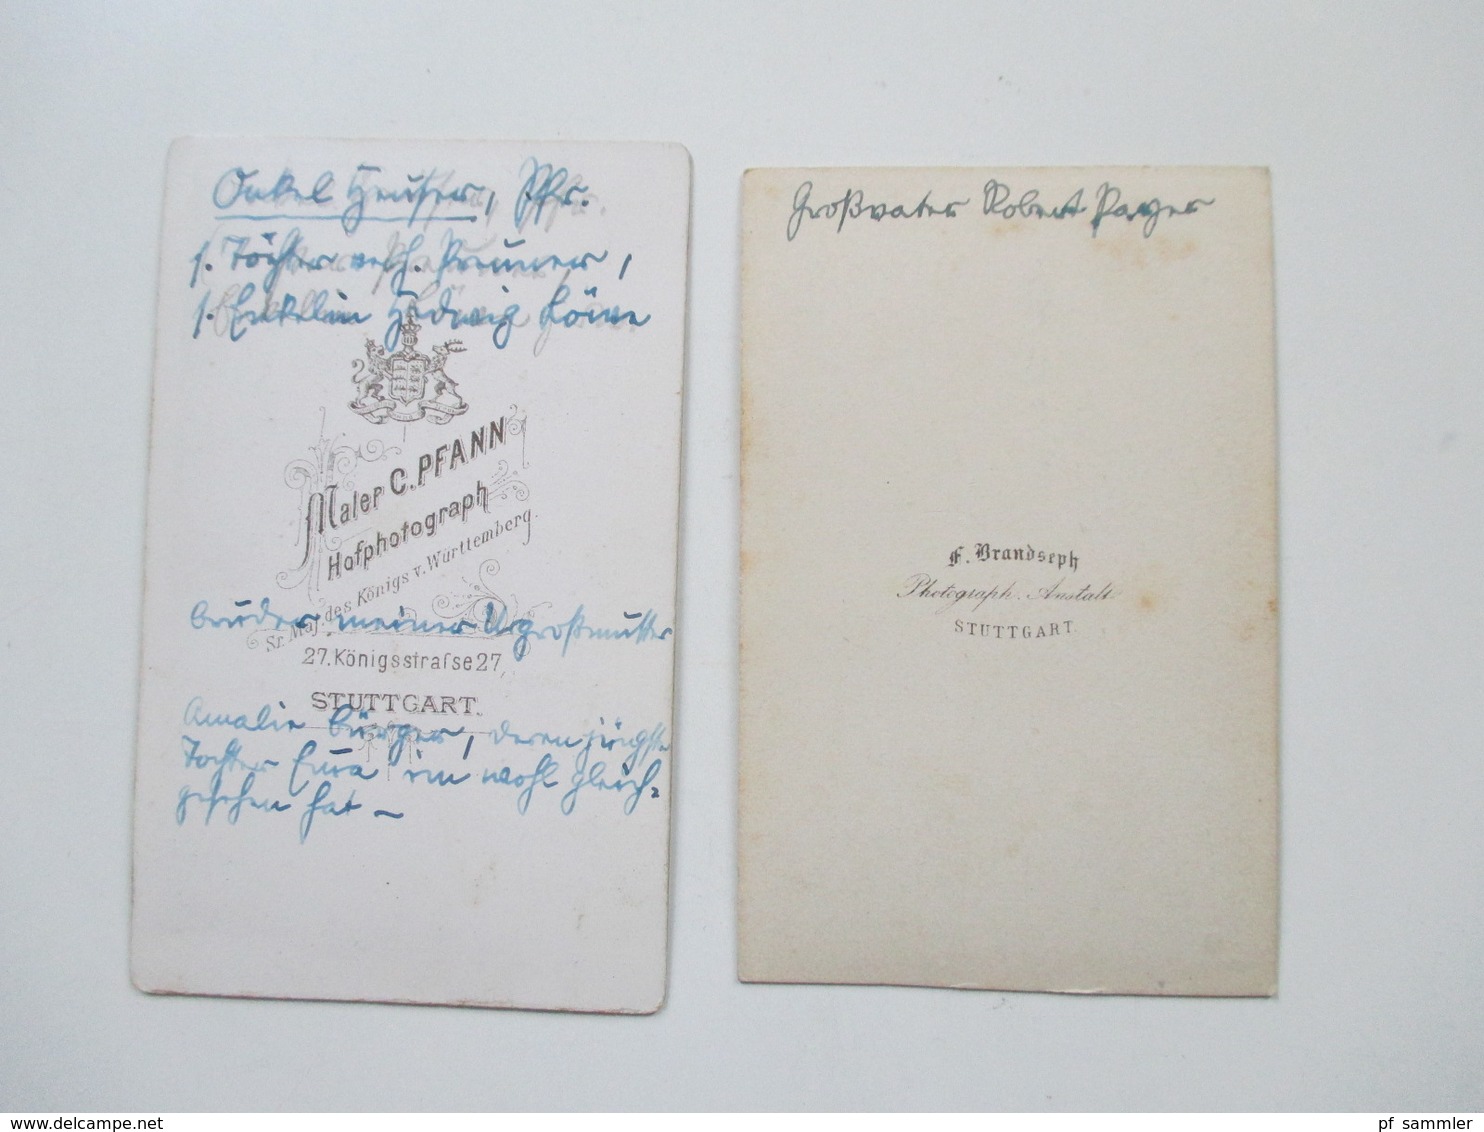 Onkel Heuser, Pfr.
s. Töchter verh. Preuner,
s. Enkelin Hedwig Löwe
Maler C. PFANN
Hofphotograph
Sr. Maj. des Königs v. Württemberg.
bruder meiner Urgroßmutter
27. Königsstrafse 27
STUTTGART.
Amalie Bürger, deren jüngste
Tochter Emma ihm wohl gleich-
gesehen hat –
Großvater Robert Payer
F. Brandseph
Photograph. Anstalt
STUTTGART.
pf sammler